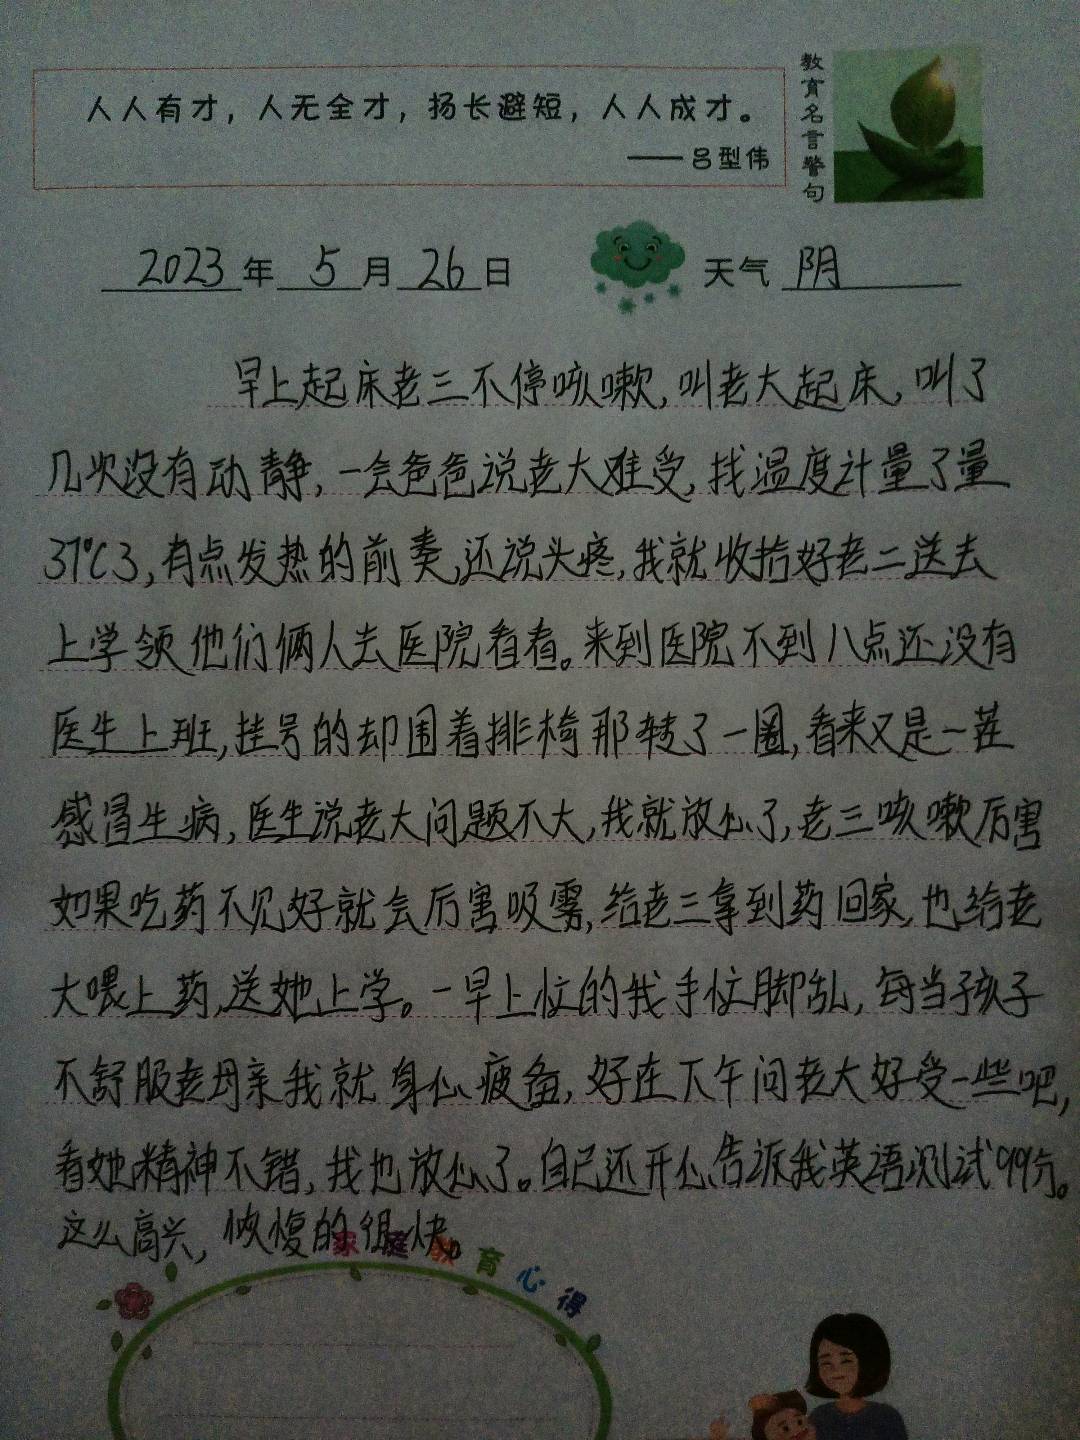 人人有才，人无全才，扬长避短，人人成才。
——吕型伟
教育名言警句
2023年5月26日 天气 阴
早上起床老三不停咳嗽,叫老大起床,叫了
几次没有动静,一会爸爸说老大难受,找温度计量了量
37℃3,有点发热的前奏,还说头疼,我就收拾好老二送去
上学领他们俩人去医院看看。来到医院不到八点还没有
医生上班,挂号的却围着排椅那转了一圈,看来又是一茬
感冒生病,医生说老大问题不大,我就放心了,老三咳嗽厉害
如果吃药不见好就会厉害吸雾,给老三拿到药回家,也给老
大喂上药,送她上学。一早上忙的我手忙脚乱,每当孩子
不舒服老母亲我就身心疲惫,好在下午问老大好受一些吧,
看她精神不错,我也放心了。自己还开心告诉我英语测试99分。
这么高兴,恢复的很快。
家庭教育心得